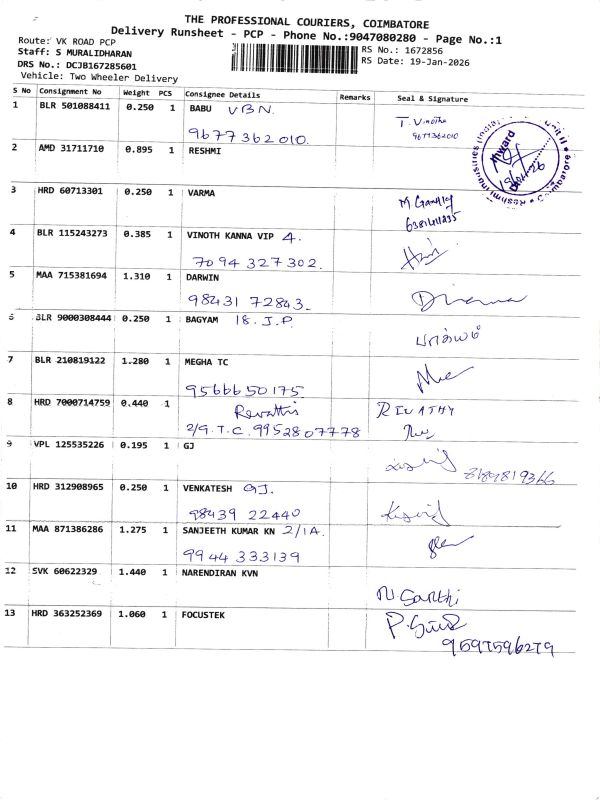 THE PROFESSIONAL COURIERS, COIMBATORE
Delivery Runsheet - PCP - Phone No.:9047080280 - Page No.:1
Route: VK ROAD PCP
Staff: S MURALIDHARAN
DRS No.: DCJB167285601
Vehicle: Two Wheeler Delivery
RS No.: 1672856
RS Date: 19-Jan-2026
S No Consignment No Weight PCS Consignee Details Remarks Seal & Signature
1 BLR 501088411 0.250 1 BABU VBN.
9677362010. T. Vinotha
9677362010
2 AMD 31711710 0.895 1 RESHMI
Inward
Coimbatore
3 HRD 60713301 0.250 1 VARMA
4 BLR 115243273 0.385 1 VINOTH KANNA VIP 4.
7094 327302.
5 MAA 715381694 1.310 1 DARWIN
98431 72843.
6 BLR 9000308444 0.250 1 BAGYAM 18. J.P.
பாக்யம்
7 BLR 210819122 1.280 1 MEGHA TC
9566650175.
8 HRD 7000714759 0.440 1 Revathi REVATHY
2/9.T.C. 9952807778
9 VPL 125535226 0.195 1 GJ
8189819366
10 HRD 312908965 0.250 1 VENKATESH GJ.
98439 22440
11 MAA 871386286 1.275 1 SANJEETH KUMAR KN 2/1A.
9944 333139
12 SVK 60622329 1.440 1 NARENDIRAN KVN
N. Sakthi
13 HRD 363252369 1.060 1 FOCUSTEK
9597596279